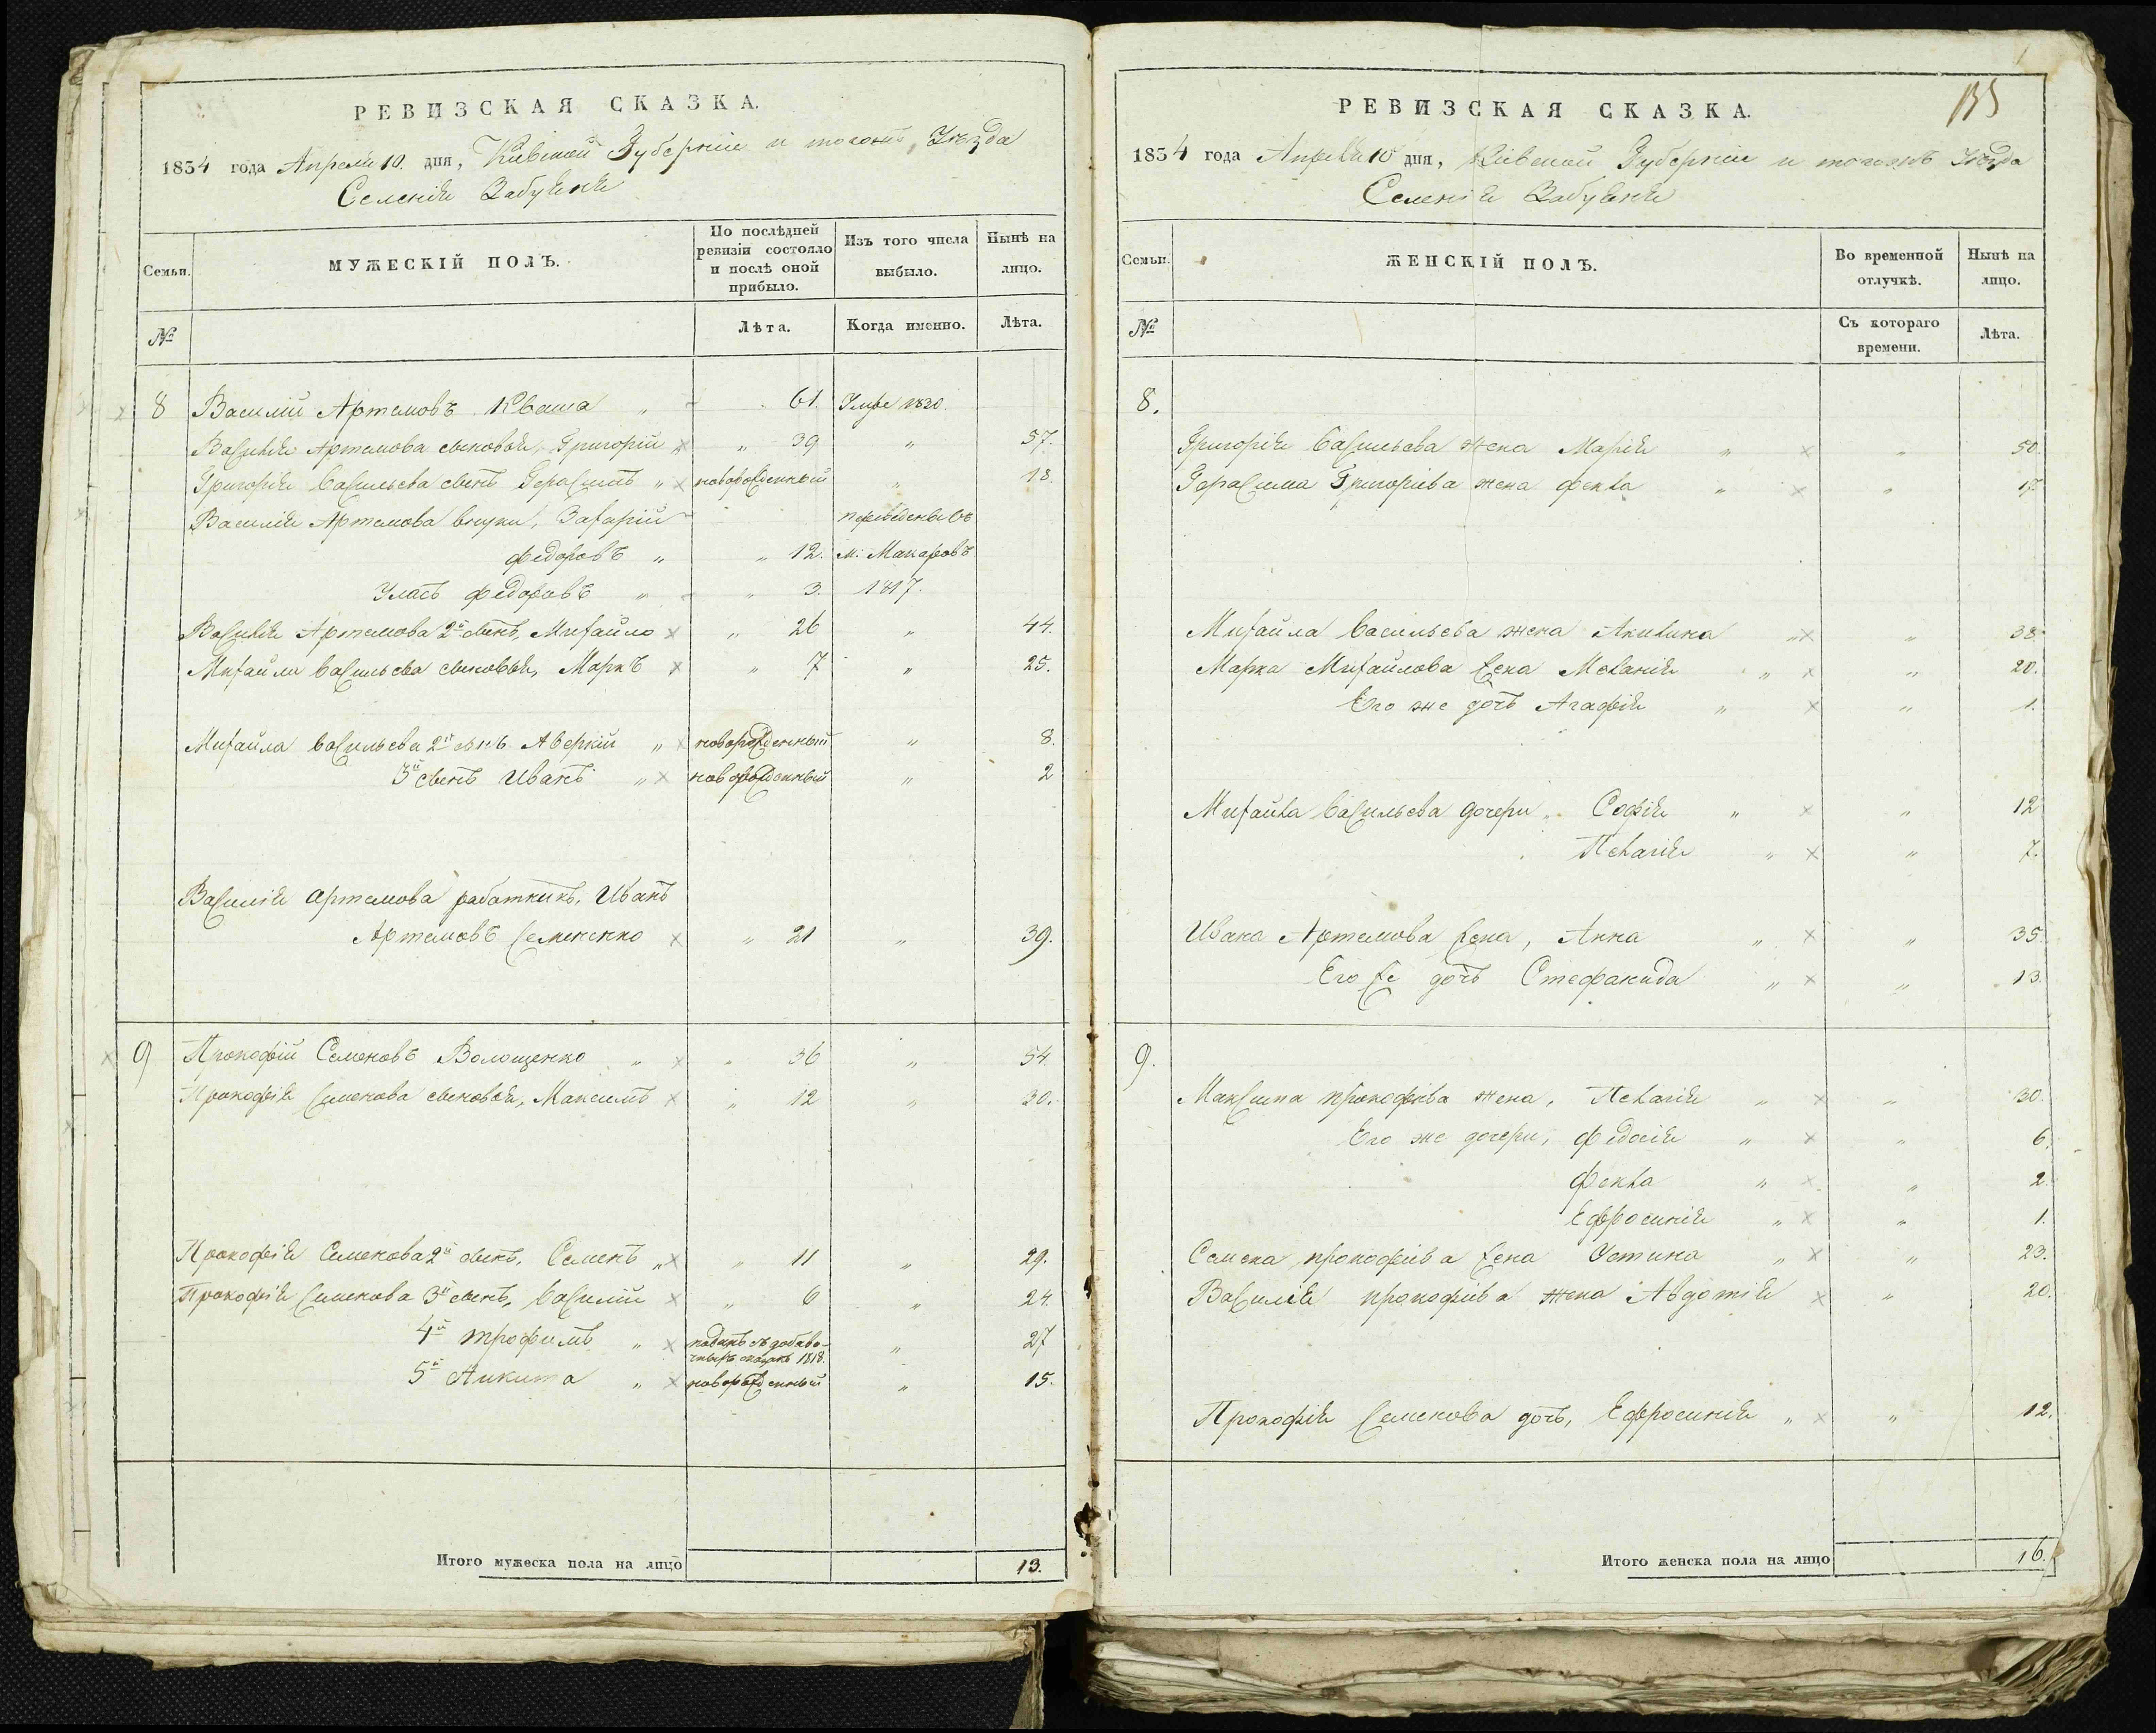 РЕВИЗСКАЯ СКАЗКА.
1834 года Апреля 10. дня, Кіевской Губерніи и тогожъ Уѣзда
Селенія Забуяня
Семьи.
МУЖЕСКІЙ ПОЛЪ.
По послѣдней ревизіи состояло и послѣ оной прибыло.
Изъ того числа выбыло.
Нынѣ на лицо.
№
Лѣта.
Когда именно.
Лѣта.
8 Василій Артемовъ Кваша „ 61. Умре 1820.
Василія Артемова сыновья, Григорій „ 39 „ 57.
Григорія Васильева сынъ Герасимъ „ новорожденный „ 18.
Василія Артемова внуки, Захарій переведены въ
Федоровъ „ „ 12. м: Макаровъ
Уласъ Федоровъ „ „ 3. 1817.
Василія Артемова 2й сынъ, Михайло „ 26 „ 44.
Михайла Васильева сыновья, Маркъ „ 7 „ 25.
Михайла Васильева 2й сынъ Аверкій „ новорожденный „ 8.
3й сынъ Иванъ „ новорожденный „ 2
Василія Артемова работникъ, Иванъ
Артемовъ Семененко „ 21 „ 39.
9 Прокофій Семеновъ Волощенко „ „ 36 „ 54.
Прокофія Семенова сыновья, Максимъ „ 12 „ 30.
Прокофія Семенова 2й сынъ, Семенъ „ „ 11 „ 29.
Прокофія Семенова 3й сынъ, Василій „ 6 „ 24.
4й Трофимъ „ поданъ въ добаво-
чныхъ сказкъ 1818. „ 27
5й Аникита „ новорожденный „ 15.
Итого мужеска пола на лицо 13.
135
РЕВИЗСКАЯ СКАЗКА.
1834 года Апреля 10 дня, Кіевской Губерніи и тогожъ Уѣзда
Селенія Забуяня
Семьи.
ЖЕНСКІЙ ПОЛЪ.
Во временной отлучкѣ.
Нынѣ на лицо.
№
Съ котораго времени.
Лѣта.
8.
Григорія Васильева жена Марія „ „ 50.
Герасима Григоріева жена Фекла „ „ 17
Михайла Васильева жена Акилина „ „ 38.
Марка Михайлова жена Меланія „ „ 20.
Его же дочь Агафія „ „ 1.
Михайла Васильева дочери, Софія „ „ 12
Пелагія „ „ 7.
Ивана Артемова жена, Анна „ „ 35.
Его же дочь Стефанида „ „ 13.
9.
Максима Прокофіева жена, Пелагія „ „ 30.
Его же дочери, Федосія „ „ 6.
Фекла „ „ 2.
Ефросинія „ „ 1.
Семена Прокофіева жена Устина „ „ 23.
Василія Прокофіева жена Авдотія „ 20.
Прокофія Семенова дочь, Ефросинія „ „ 12.
Итого женска пола на лицо 16.